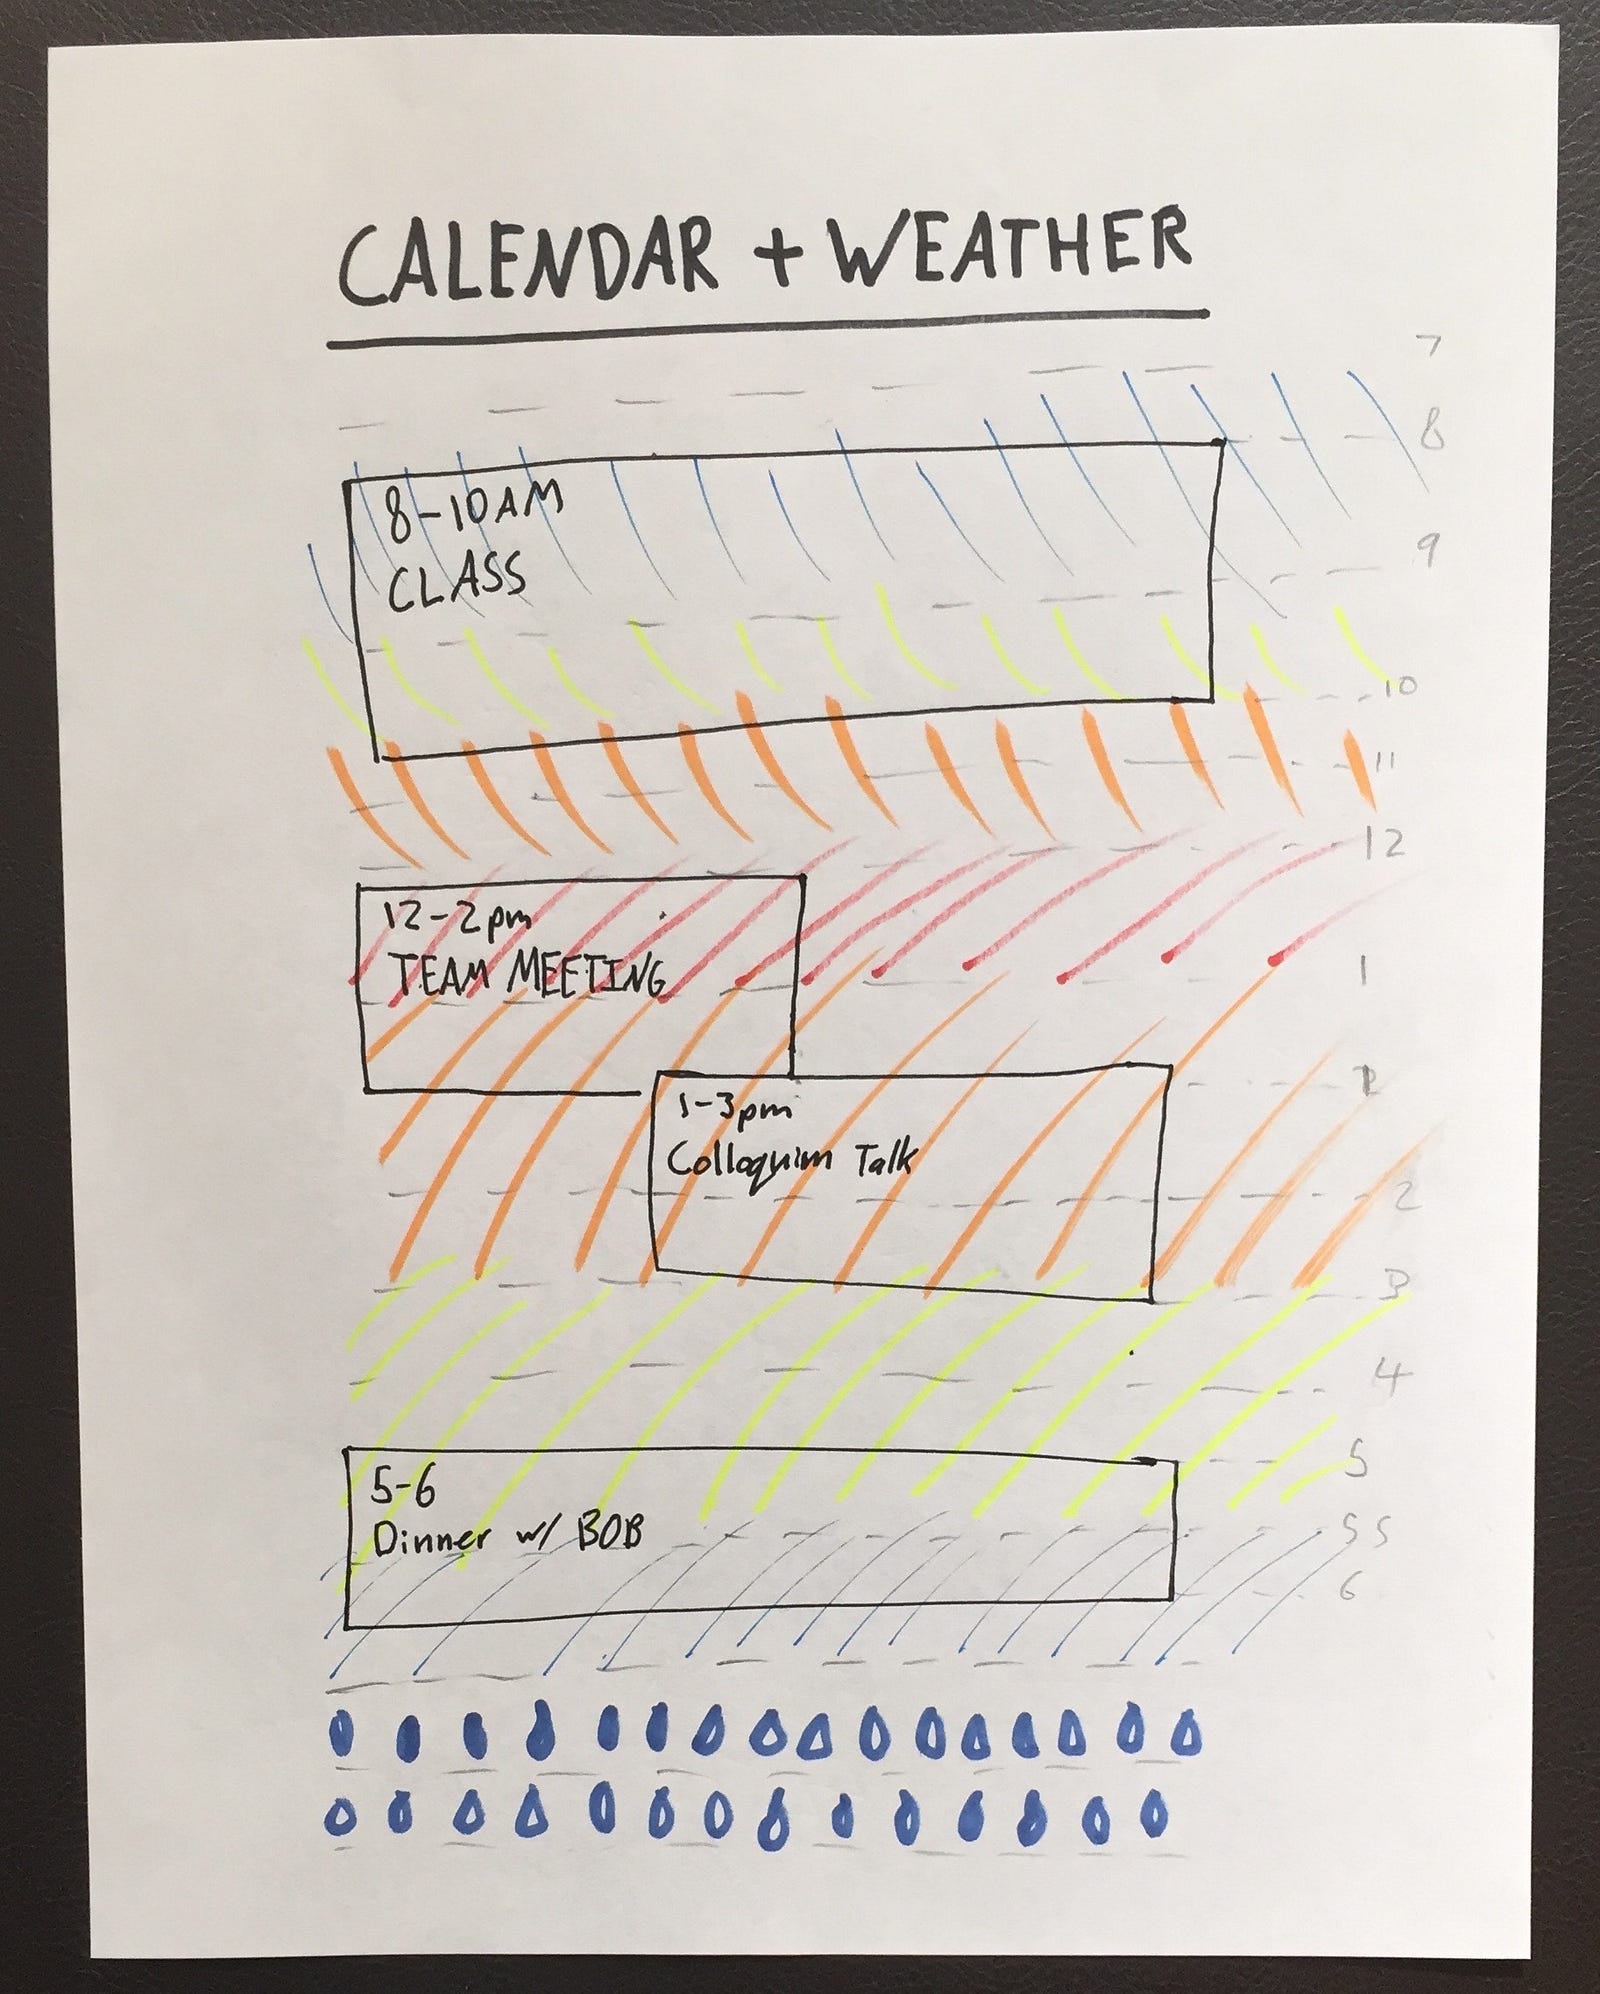 CALENDAR + WEATHER
7
8
8-10AM
CLASS
9
10
11
12
12-2pm
TEAM MEETING
1
1-3pm
Colloquim Talk
2
3
4
5
5-6
Dinner w/ BOB
5 5
6